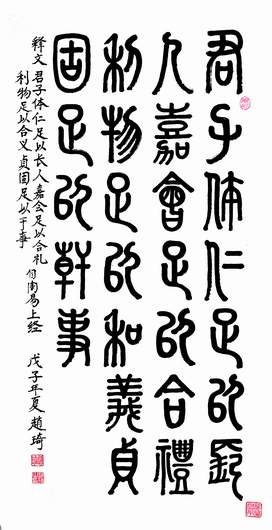 君子体仁足以長
人嘉會足以合禮
利物足以和義貞
固足以幹事
释文 君子体仁足以长人嘉会足以合礼
利物足以合义贞固足以干事
句周易上经 戊子年夏 趙琦